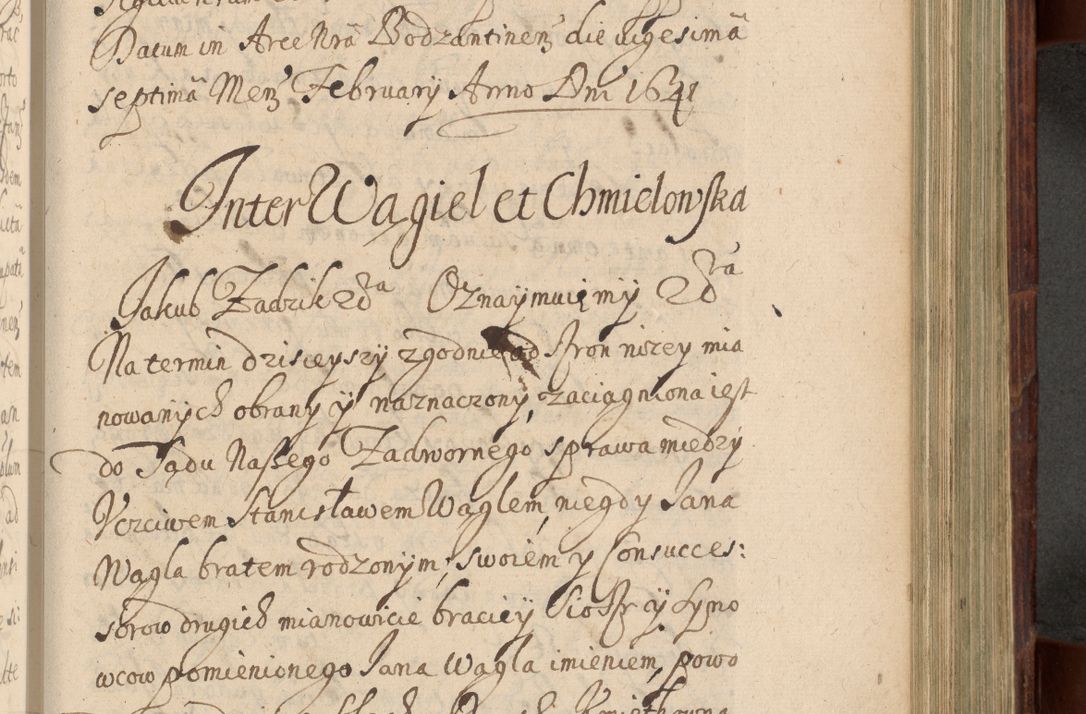 Datum in Arce Nrã Bodzantinen̄ die uigesimâ
septimâ Men̄ February Anno Dni 1641
Inter Wagiel et Chmielowska
Jakub Zadzik &c̃a Oznaÿmuiemÿ &c̃a
Na termin dzisieyszÿ zgodnie od stron niżey mia
nowanÿch obrany ÿ naznaczony, zaciągniona iest
do Sądu Naszego Zadwornego sprawa miedzy
Vczciwem Stanisławem Waglem, niegdy Jana
Wagla bratem rodzonÿm, swoiem y Consucces:
sorow drugich mianowicie braciey Siostr ÿ Syno
wcow pomienionego Jana Wagla imieniem, powo